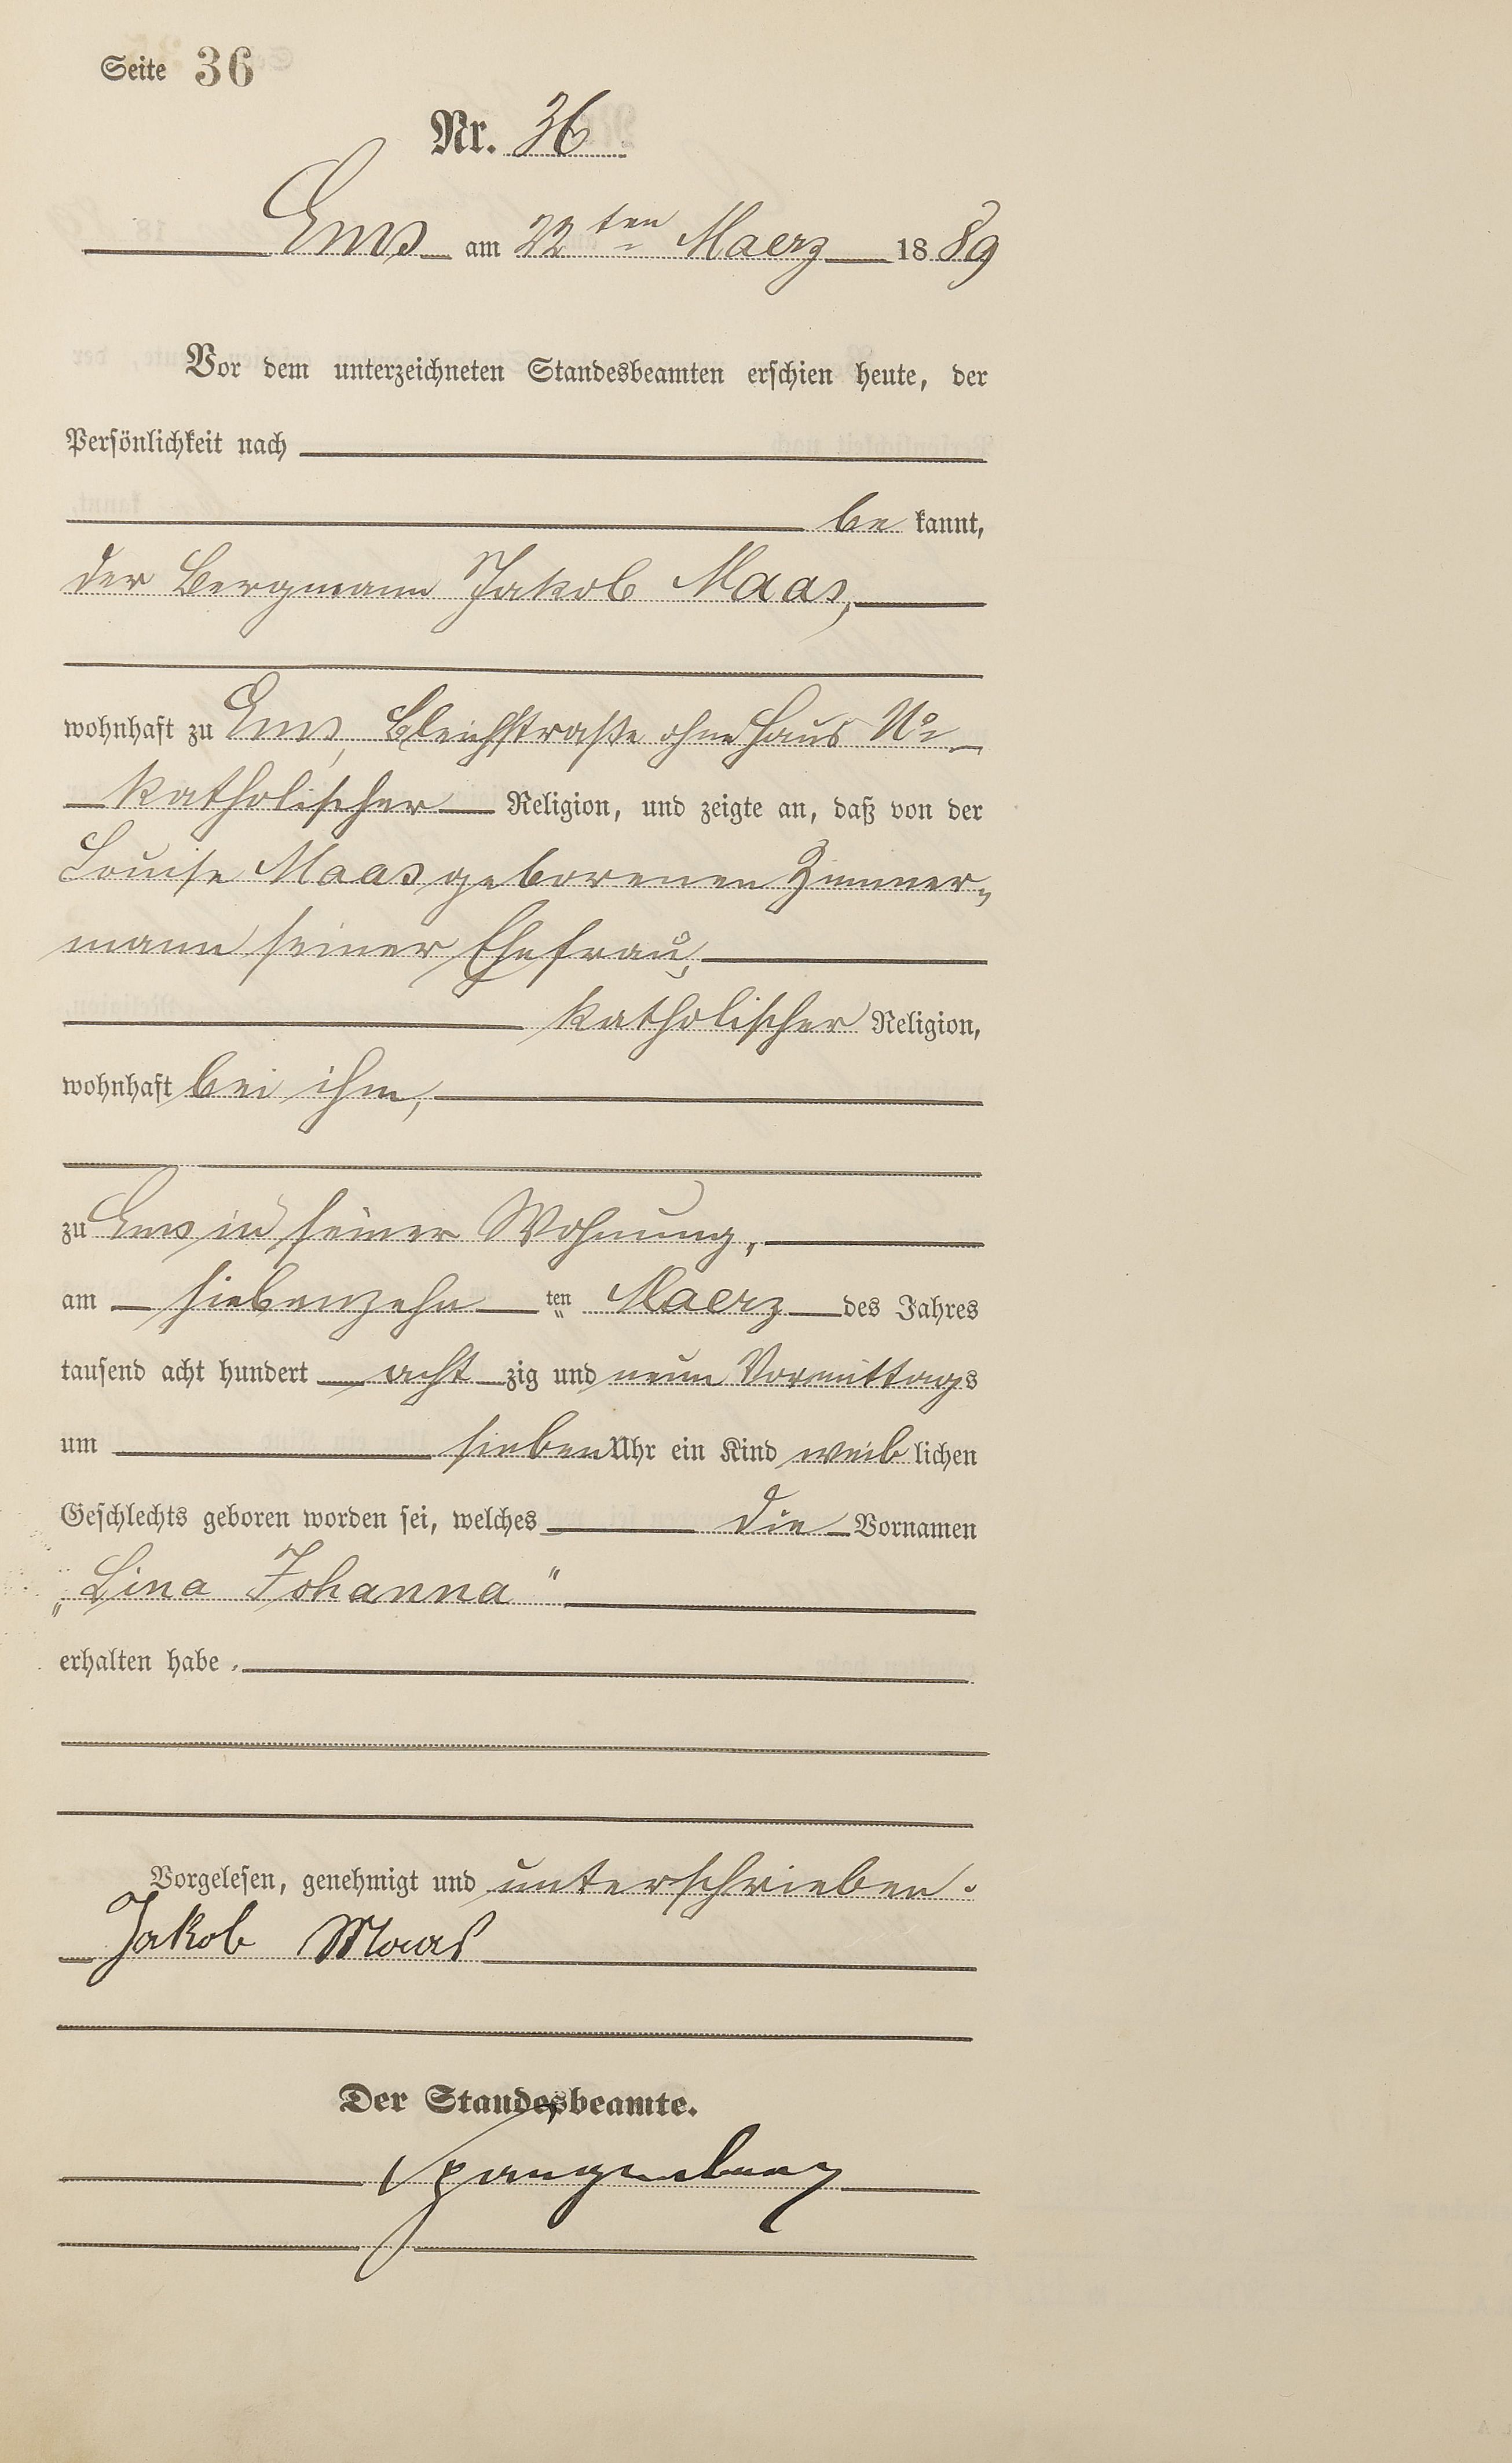 Seite 36
Nr. 36
Ems am 22ten Maerz 1889
Vor dem unterzeichneten Standesbeamten erschien heute, der
Persönlichkeit nach
be kannt,
der Bergmann Jakob Maas,
wohnhaft zu Ems, Bleichstraße ohne Haus No
katholischer Religion, und zeigte an, daß von der
Louise Maas geborenen Zimmer-
mann seiner Ehefrau,
katholischer Religion,
wohnhaft bei ihm,
zu Ems in seiner Wohnung,
am siebenzehn ten Maerz des Jahres
tausend acht hundert acht zig und neun Vormittags
um sieben Uhr ein Kind weib lichen
Geschlechts geboren worden sei, welches die Vornamen
„Lina Johanna“
erhalten habe.
Vorgelesen, genehmigt und unterschrieben.
Jakob Maas
Der Standesbeamte.
Spangenberg